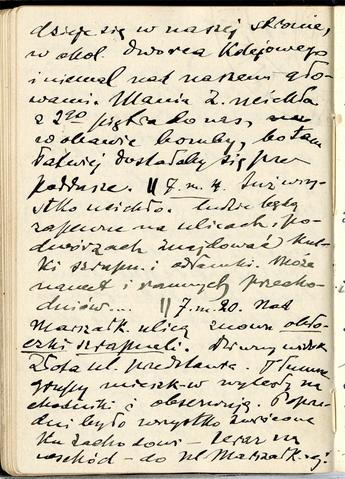 dzieje się w naszej stronie,
w okol. dworca Kolejowego
i niemal nad naszemi gło-
wami. Mania Z. uciekła
z 2go piętra do nas, 
w obawie bomby, bo tam
łatwiej dostałaby się przez
poddasze. || 7.m.4. Już wszy-
stko ucichło. Ludzie będą
zapewne na ulicach i po-
dwórzach znajdować kul-
ki szrapn. i odłamki. Może
nawet i rannych przecho-
dniów... || 7.m.20. Nad
Marszałk. ulicą znowu obło-
czki szrapneli. Dziwny widok
Złota ul. przedstawia. Tłumne
grupy mieszk-w wyległy na
chodniki i obserwują. Poprze-
dni było wszystko zwrócone
ku zachodowi – teraz na
wschód – do ul. Marszałk-ej.